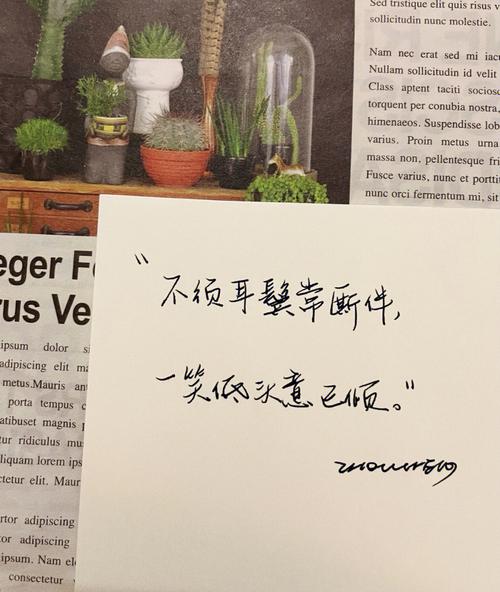 Sed tristique elit quis risus v
sollicitudin nunc molestie.
Nam nec erat sed mi iacu
Nullam sollicitudin id velit
Class aptent taciti sociosq
torquent per conubia nostra,
himenaeos. Suspendisse lob
varius. Proin metus urna
massa non, pellentesque fri
Fusce varius, nunc et portti
nunc orci fermentum mi, sit
eger F
rus Ve
ipsum dolor si
adipiscing elit ma
metus.Mauris an
porta tempus c
atibulet magnis p
tur ridiculus mu
liquam lorem ips
ctetur elit. Maur
rtor adipiscing
tor adipiscing
ipsum. Nam el
consectetur
"不须耳鬓常厮伴，
一笑低头意已倾。"